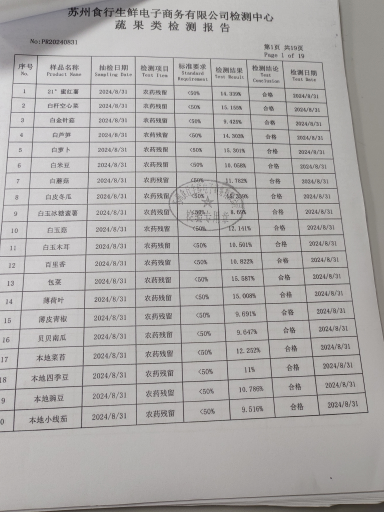 苏州食行生鲜电子商务有限公司检测中心
蔬果类检测报告
No:PR20240831
第1页 共19页
Page 1 of 19
序号 No. 样品名称 Product Name 抽检日期 Sampling Date 检测项目 Test Item 标准要求 Standard Requirement 检测结果 Test Result 检测结论 Test Conclusion 检测日期 Test Date
1 21°蜜红薯 2024/8/31 农药残留 <50% 14.939% 合格 2024/8/31
2 白杆空心菜 2024/8/31 农药残留 <50% 15.155% 合格 2024/8/31
3 白金针菇 2024/8/31 农药残留 <50% 9.429% 合格 2024/8/31
4 白芦笋 2024/8/31 农药残留 <50% 14.303% 合格 2024/8/31
5 白萝卜 2024/8/31 农药残留 <50% 15.301% 合格 2024/8/31
6 白米豆 2024/8/31 农药残留 <50% 16.058% 合格 2024/8/31
7 白蘑菇 2024/8/31 农药残留 <50% 11.782% 合格 2024/8/31
8 白皮冬瓜 2024/8/31 农药残留 <50% 合格 2024/8/31
9 白玉冰糖蜜薯 2024/8/31 农药残留 <50% 合格 2024/8/31
10 白玉菇 2024/8/31 农药残留 <50% 12.141% 合格 2024/8/31
11 白玉木耳 2024/8/31 农药残留 <50% 16.501% 合格 2024/8/31
12 百里香 2024/8/31 农药残留 <50% 16.822% 合格 2024/8/31
13 包菜 2024/8/31 农药残留 <50% 15.587% 合格 2024/8/31
14 薄荷叶 2024/8/31 农药残留 <50% 15.008% 合格 2024/8/31
15 薄皮青椒 2024/8/31 农药残留 <50% 9.691% 合格 2024/8/31
16 贝贝南瓜 2024/8/31 农药残留 <50% 9.047% 合格 2024/8/31
17 本地菜苔 2024/8/31 农药残留 <50% 12.252% 合格 2024/8/31
18 本地四季豆 2024/8/31 农药残留 <50% 11% 合格 2024/8/31
9 本地豌豆 2024/8/31 农药残留 <50% 10.786% 合格 2024/8/31
0 本地小线茄 2024/8/31 农药残留 <50% 9.516% 合格 2024/8/31